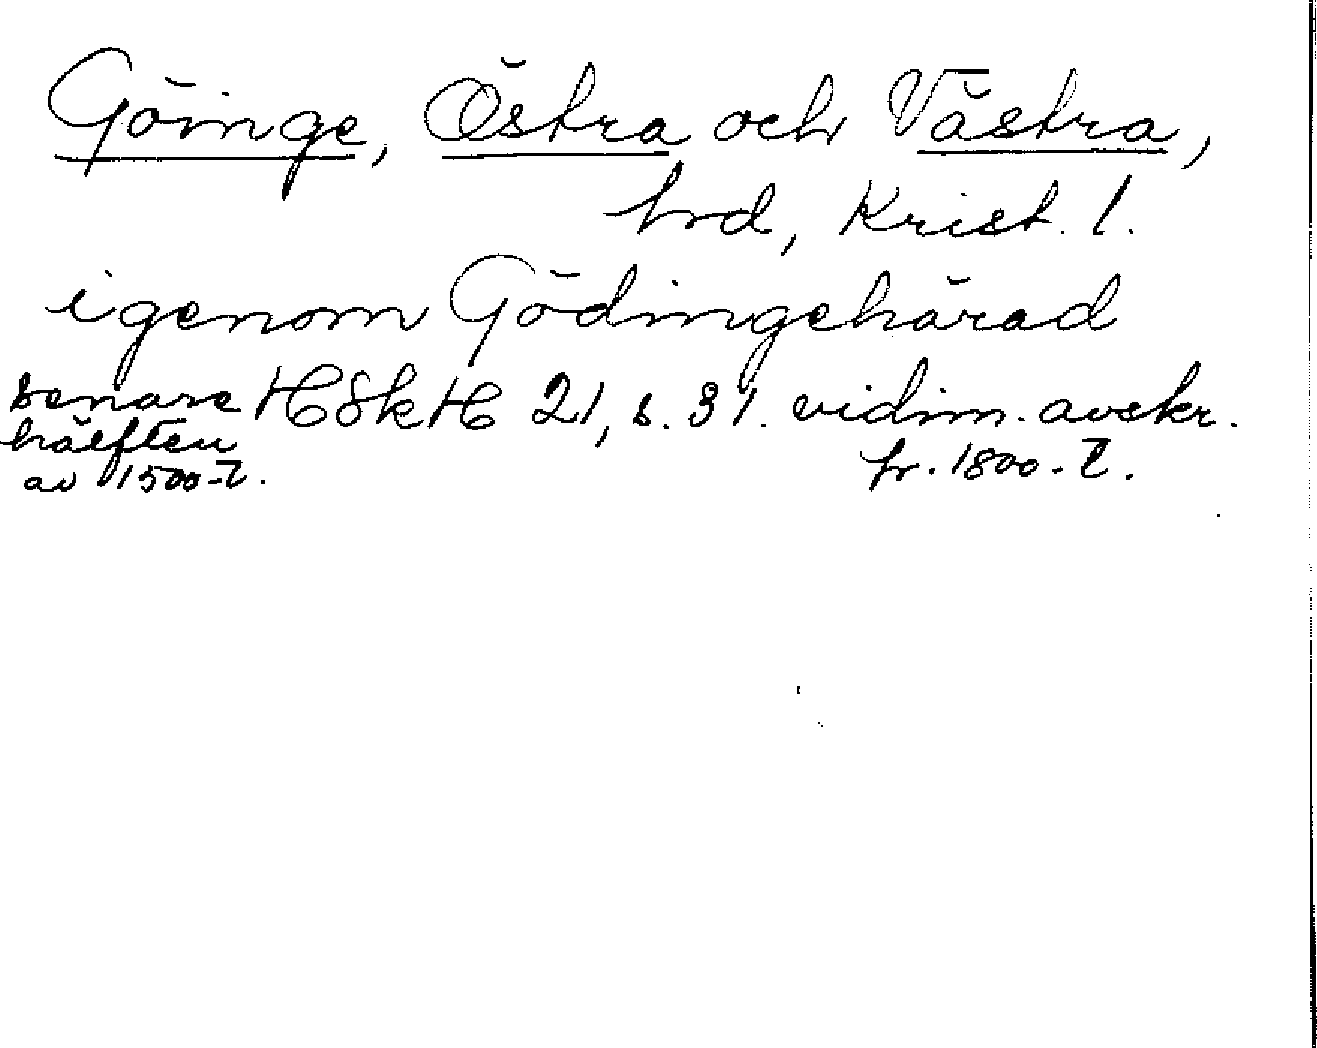 Göinge, Östra och Västra,
hrd, Krist. l.
igenom Gödingehärad
senare HSkH 21, s. 31. vidim. avskr.
hälften
av 1500-t. fr. 1800-t.